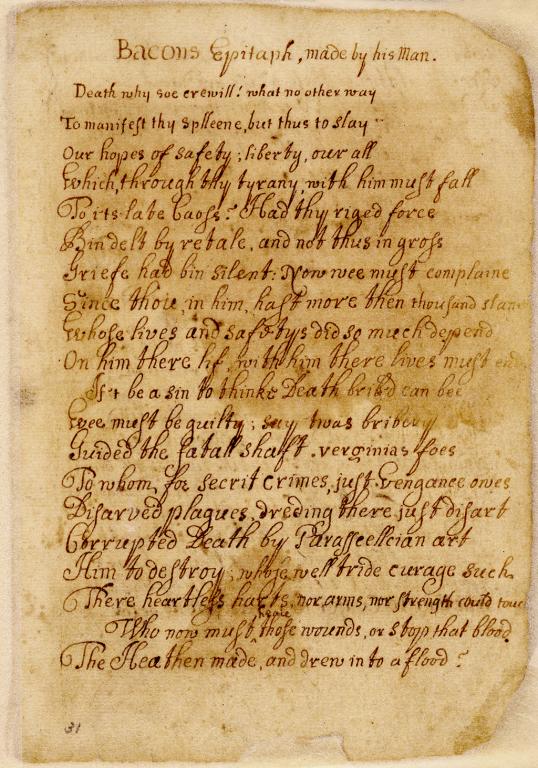 Bacons Epitaph, made by his Man.
Death why soe crewill! what no other way
To manifest thy splleene, but thus to slay
Our hopes of safety; liberty, our all
Which, through thy tyrany, with him must fall
To its late Caoss? Had thy riged force
Bin delt by retale, and not thus in gross
Griefe had bin silent: Now wee must complaine
Since thou, in him, hast more then thousand slane
Whose lives and safetys did so much depend
On him there lif, with him there lives must end
If't be a sin to thinke Death brib'd can bee
Wee must be guilty; say twas bribery
Guided the fatall shaft. verginias foes
To whom, for secrit crimes, just vengance owes
Disarved plagues, dreding there just disart
Corrupted Death by Parasscellcian art
Him to destroy; whose well tride curage such,
There heartless harts, nor arms, nor strength could touch
heale
Who now must ^ those wounds, or stop that blood
The Heathen made, and drew in to a flood?
31